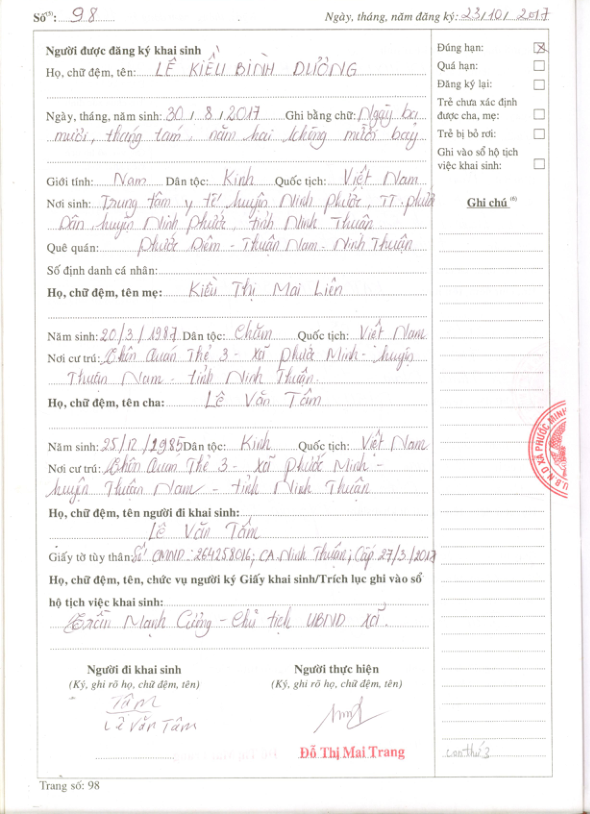 Số⁽⁵⁾: 98 Ngày, tháng, năm đăng ký: 23/10/2017
Người được đăng ký khai sinh
Họ, chữ đệm, tên: LÊ KIỀU BÌNH DƯƠNG
Ngày, tháng, năm sinh: 30/8/2017 Ghi bằng chữ: Ngày ba
mươi, tháng tám, năm hai không mười bảy
Giới tính: Nam Dân tộc: Kinh Quốc tịch: Việt Nam
Nơi sinh: Trung tâm y tế huyện Ninh Phước, TT. Phước
Dân, huyện Ninh Phước, tỉnh Ninh Thuận
Quê quán: Phước Diêm - Thuận Nam - Ninh Thuận
Số định danh cá nhân:
Họ, chữ đệm, tên mẹ: Kiều Thị Mai Liên
Năm sinh: 20/3/1987 Dân tộc: Chăm Quốc tịch: Việt Nam
Nơi cư trú: Thôn Quán Thẻ 3 - xã Phước Minh - huyện
Thuận Nam - tỉnh Ninh Thuận
Họ, chữ đệm, tên cha: Lê Văn Tâm
Năm sinh: 25/12/1985 Dân tộc: Kinh Quốc tịch: Việt Nam
Nơi cư trú: Thôn Quán Thẻ 3 - xã Phước Minh -
huyện Thuận Nam - tỉnh Ninh Thuận
Họ, chữ đệm, tên người đi khai sinh:
Lê Văn Tâm
Giấy tờ tùy thân: Số CMND: 264258016; CA. Ninh Thuận; Cấp 27/3/2017
Họ, chữ đệm, tên, chức vụ người ký Giấy khai sinh/Trích lục ghi vào sổ
hộ tịch việc khai sinh:
Trần Mạnh Cường - Chủ tịch UBND xã.
Người đi khai sinh
(Ký, ghi rõ họ, chữ đệm, tên)
Tâm
Lê Văn Tâm
Người thực hiện
(Ký, ghi rõ họ, chữ đệm, tên)
Đỗ Thị Mai Trang
Đúng hạn:
Quá hạn:
Đăng ký lại:
Trẻ chưa xác định
được cha, mẹ:
Trẻ bị bỏ rơi:
Ghi vào sổ hộ tịch
việc khai sinh:
Ghi chú ⁽⁶⁾
U.B.N.D XÃ PHƯỚC MINH
con thứ 3
Trang số: 98